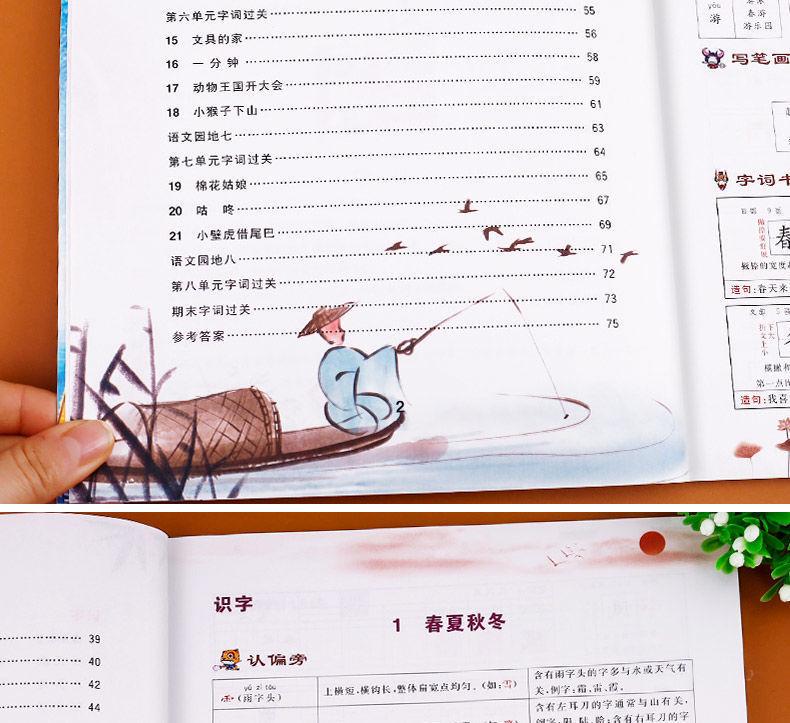 第六单元字词过关 55
15 文具的家 56
16 一分钟 58
17 动物王国开大会 59
18 小猴子下山 61
语文园地七 63
第七单元字词过关 64
19 棉花姑娘 65
20 咕咚 67
21 小壁虎借尾巴 69
语文园地八 71
第八单元字词过关 72
期末字词过关 73
参考答案 75
2
yóu
游
春游
游乐园
写笔画
字词书
春
撇捺的宽度
造句:春天来
第一点
造句:我喜
39
40
42
44
识字
1 春夏秋冬
认偏旁
yǔ zì tóu
(雨字头)
上横短,横钩长,整体扁宽点均匀。(如:雪)
含有雨字头的字多与水或天气有
关,例字:霜、雷、霞。
含有左耳刀的字通常与山有关,
例字:阳、陆、险;含有右耳刀的字